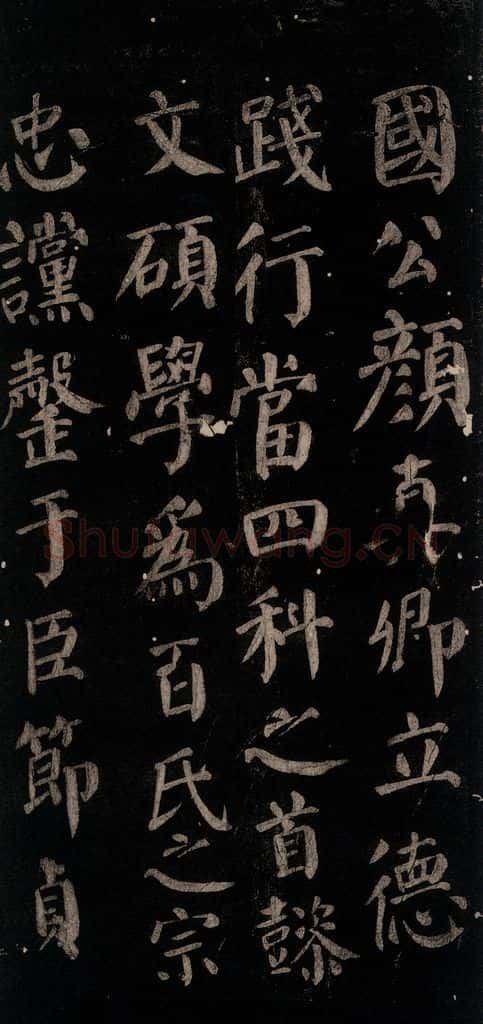 國公顏真卿立德
踐行當四科之首懿
文碩學爲百氏之宗
忠讜罄于臣節貞
Shufawang.CN